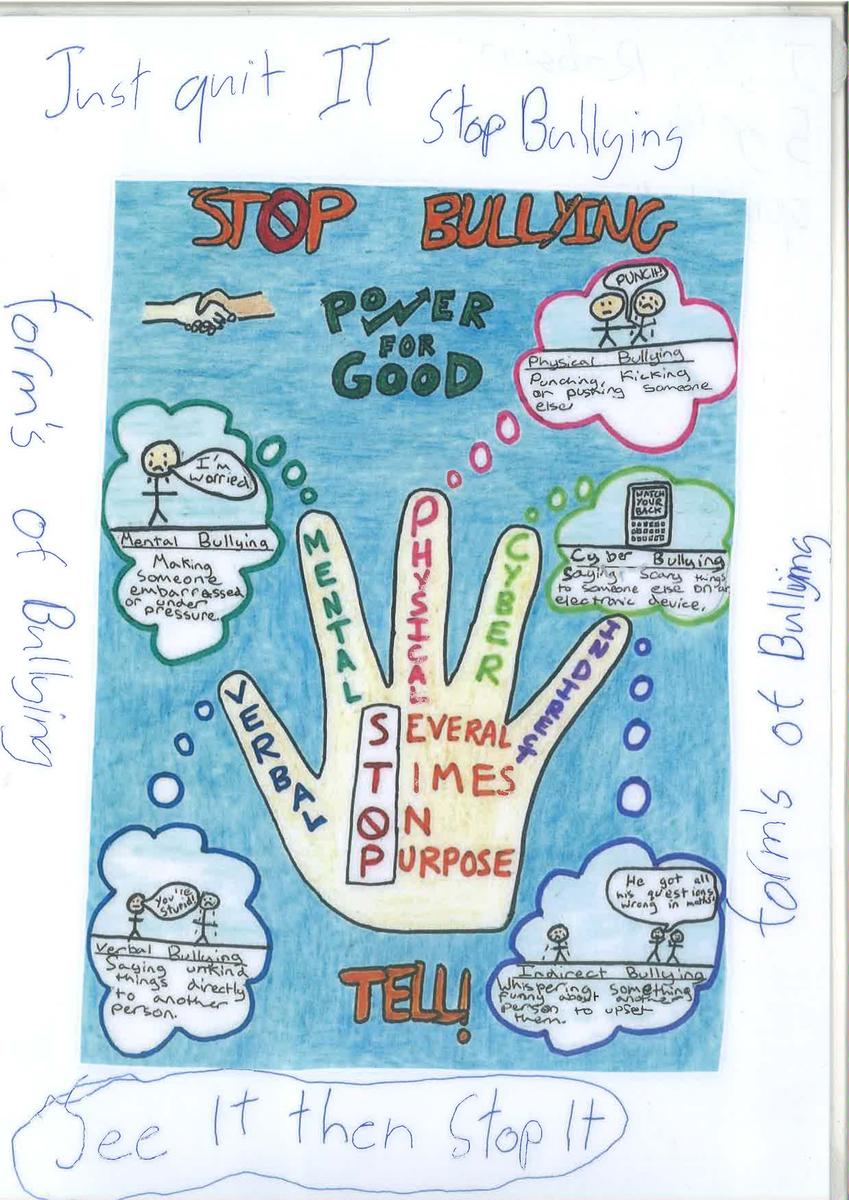 Just quit IT
Stop Bullying
STOP BULLYING
POWER
FOR
GOOD
PUNCH!
Physical Bullying
Punching, Kicking
or pushing someone
else
I'm
worried.
Mental Bullying
Making
someone
embarressed
or under
pressure.
WATCH
YOUR
BACK
Cyber Bullying
Saying scary things
to someone else on an
electronic device.
VERBAL
MENTAL
PHYSICAL
CYBER
INDIRECT
SEVERAL
TIMES
ON
PURPOSE
You're
stupid!
Verbal Bullying
Saying unkind
things directly
to another
person.
He got all
his questions
wrong in maths!
Indirect Bullying
Whispering something
funny about another
person to upset
them.
TELL!
form's of Bullying
form's of Bullying
See It then Stop It